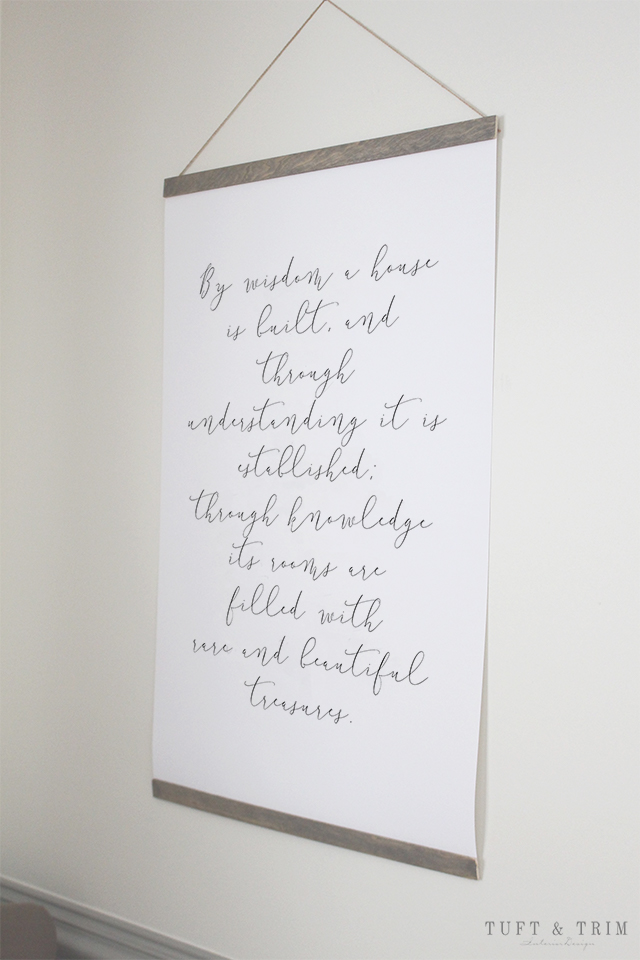 By wisdom a house
is built, and
through
understanding it is
established;
through knowledge
its rooms are
filled with
rare and beautiful
treasures.
TUFT & TRIM
Interior Design